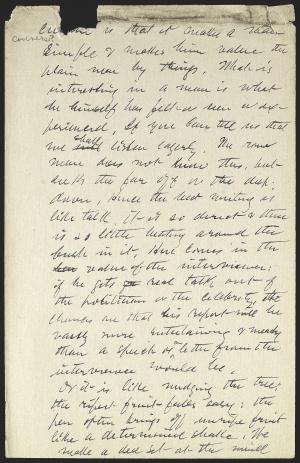 is that it makes a man
simple & makes him value the
plain man by things. What is
interesting in a man is what
he himself has felt or seen or ex-
perienced. If you can tell us that
we shall listen eagerly. The
man does not know this, but
the far off or the
down. Since the best writing is
like talk, it is so direct & there
is so little beating around the
bush in it, here comes in the
value of the interviewer;
if he gets real talk out of
the politician or the celebrity, the
chances are that his report will be
vastly more entertaining & meaty
than a speech or letter from the
interviewee would be.
Or it is like nudging the tree;
the ripest fruit falls easy; the
pen often brings off unripe fruit
like a determined shake. We
make a dead set at the mind